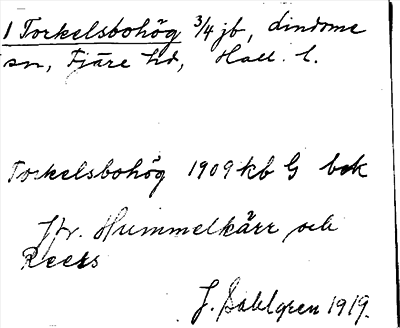 1 Torkelsbohög 3/4 jb, Lindome
sn, Fjäre hd, Hall. l.
Torkelsbohög 1909 kb G bok
Jfr. Hummelkärr och
Reers
J. Sahlgren 1919.